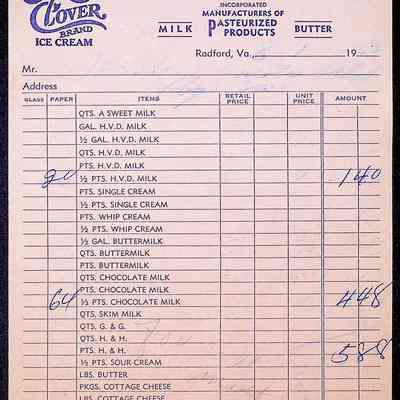 CLOVER
BRAND
ICE CREAM
INCORPORATED
MANUFACTURERS OF
MILK PASTEURIZED PRODUCTS BUTTER
Radford, Va., 19
Mr.
Address
GLASS PAPER ITEMS RETAIL PRICE UNIT PRICE AMOUNT
QTS. A SWEET MILK
GAL. H.V.D. MILK
½ GAL. H.V.D. MILK
QTS. H.V.D. MILK
PTS. H.V.D. MILK
½ PTS. H.V.D. MILK 140
PTS. SINGLE CREAM
½ PTS. SINGLE CREAM
PTS. WHIP CREAM
½ PTS. WHIP CREAM
½ GAL. BUTTERMILK
QTS. BUTTERMILK
PTS. BUTTERMILK
QTS. CHOCOLATE MILK
PTS. CHOCOLATE MILK
64 ½ PTS. CHOCOLATE MILK 448
QTS. SKIM MILK
QTS. G. & G.
QTS. H. & H.
PTS. H. & H. 588
½ PTS. SOUR CREAM
LBS. BUTTER
PKGS. COTTAGE CHEESE
LBS. COTTAGE CHEESE